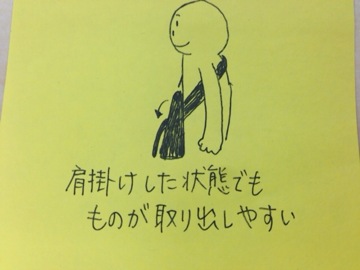 肩掛けした状態でも
ものが取り出しやすい